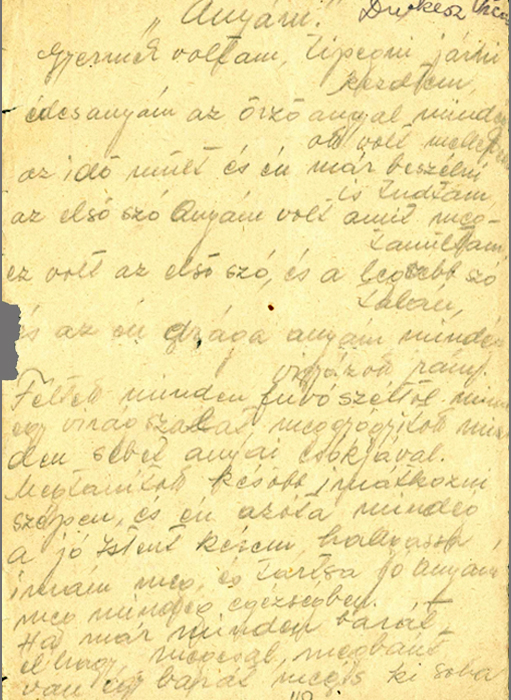 „Anyám." Drukesz
Gyermek voltam, tipegni járni
kezdtem,
édesanyám az őrző angyal minden
ott volt mellettem
az idő múlt és én már beszélni
is tudtam,
az első szó Anyám volt amit meg-
tanultam,
ez volt az első szó, és a legszebb szó
talán,
és az én drága anyám mindég
vigyázott rám.
Féltett minden fuvószéltől mint
egy virágszálat meggyógyitott min-
den sebet anyai csókjával.
Megtanitott később imátkozni
szépen, és én azóta mindég
a jó Istent kérem, halgassa
imám meg, és tartsa jó Anyám
meg mindég egézségben.
Ha már minden barát
elhagy, megcsal, megbánt
van egy barát mégis ki soha